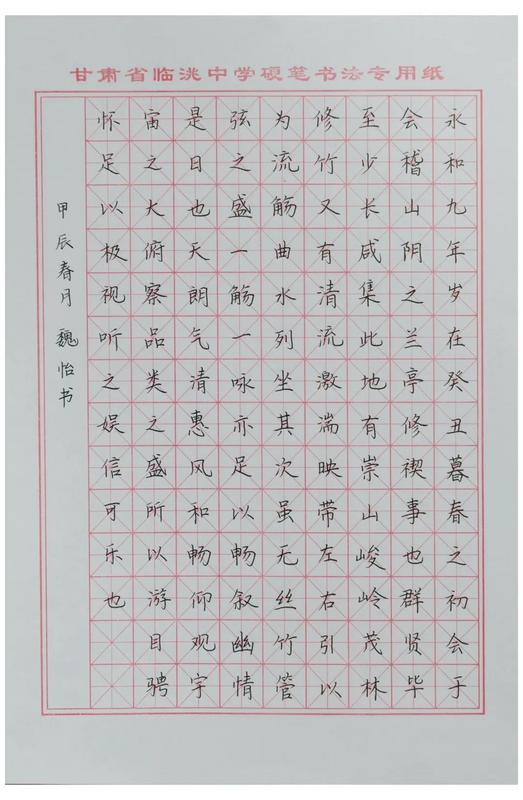 甘肃省临洮中学硬笔书法专用纸
永和九年岁在癸丑暮春之初会于
会稽山阴之兰亭修禊事也群贤毕
至少长咸集此地有崇山峻岭茂林
修竹又有清流激湍映带左右引以
为流觞曲水列坐其次虽无丝竹管
弦之盛一觞一咏亦足以畅叙幽情
是日也天朗气清惠风和畅仰观宇
宙之大俯察品类之盛所以游目骋
怀足以极视听之娱信可乐也
甲辰春月 魏怡书